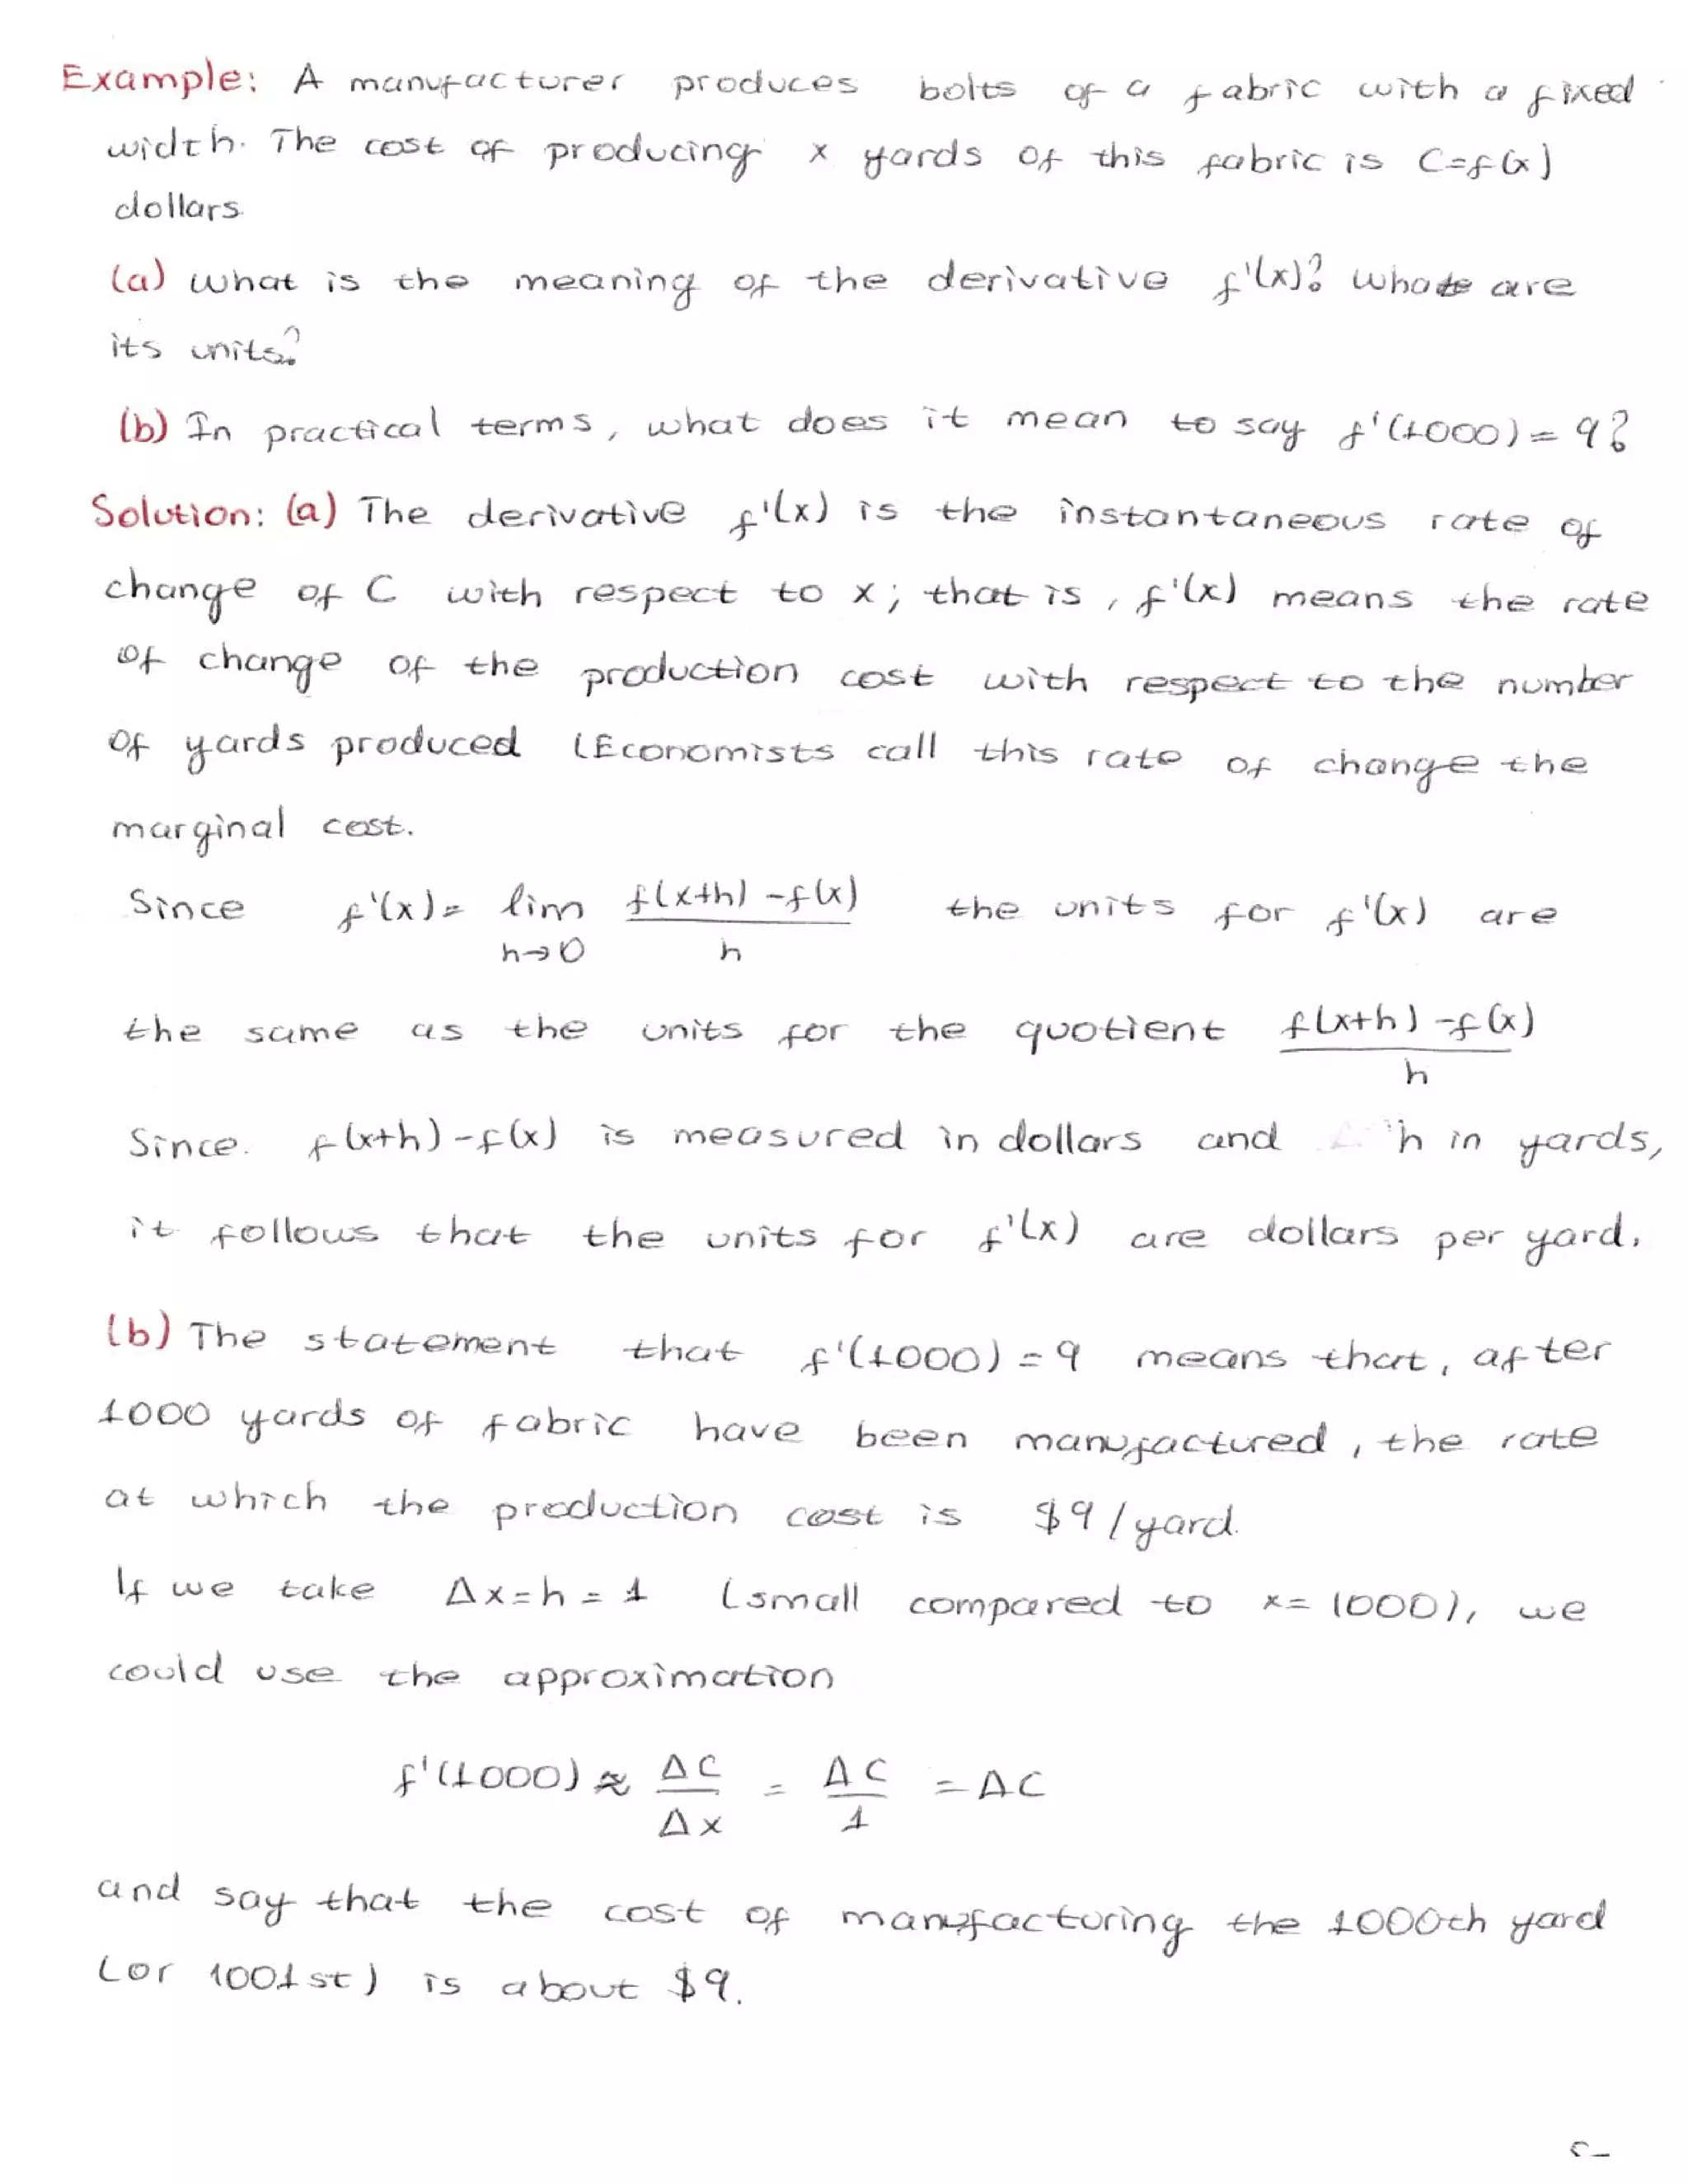 Example: A manufacturer produces bolts of a fabric with a fixed
width. The cost of producing x yards of this fabric is C=f(x)
dollars.
(a) what is the meaning of the derivative f'(x)? What are
its units?
(b) In practical terms, what does it mean to say f'(1000) = 9?
Solution: (a) The derivative f'(x) is the instantaneous rate of
change of C with respect to x; that is, f'(x) means the rate
of change of the production cost with respect to the number
of yards produced (Economists call this rate of change the
marginal cost.
Since f'(x) = lim f(x+h) - f(x) the units for f'(x) are
h→0 h
the same as the units for the quotient f(x+h) - f(x)
h
Since f(x+h) - f(x) is measured in dollars and h in yards,
it follows that the units for f'(x) are dollars per yard.
(b) The statement that f'(1000) = 9 means that, after
1000 yards of fabric have been manufactured, the rate
at which the production cost is $9/yard.
If we take Δx = h = 1 (small compared to x = 1000), we
could use the approximation
f'(1000) ≈ ΔC = ΔC = ΔC
Δx 1
and say that the cost of manufacturing the 1000th yard
(or 1001st) is about $9.